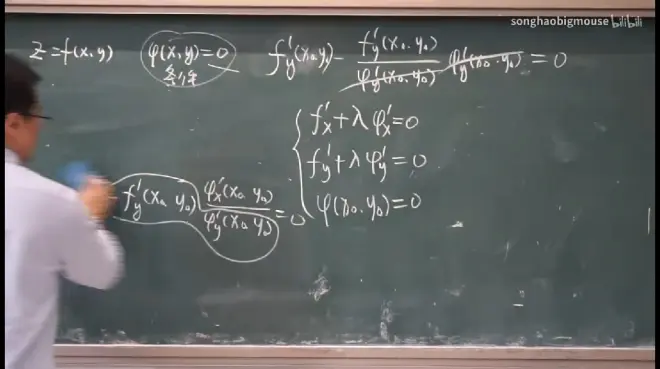 songhaobigmouse bilibili
z=f(x,y) φ(x,y)=0 f'y(x₀,y₀) - f'y(x₀,y₀)/φ'y(x₀,y₀) φ'y(x₀,y₀) = 0
条件
f'x+λφ'x=0
f'y+λφ'y=0
φ(x₀,y₀)=0
f'y(x₀,y₀) φ'x(x₀,y₀)/φ'y(x₀,y₀) = 0